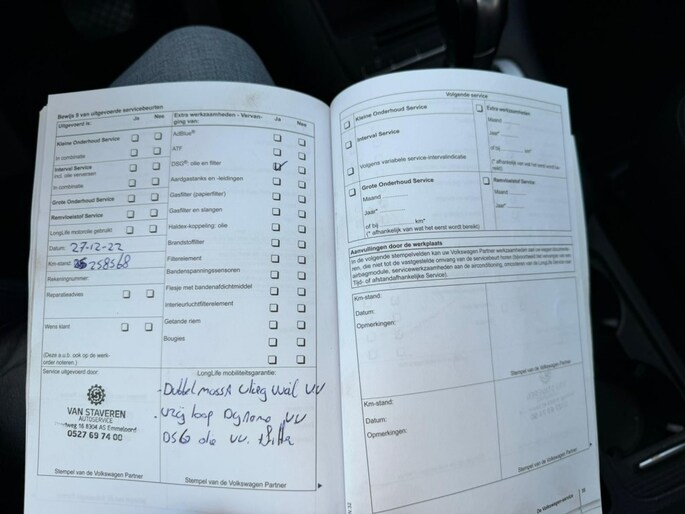 Bewijs 8 van uitgevoerde servicebeurten
Uitgevoerd is: Ja Nee
Kleine Onderhoud Service
In combinatie
Interval Service
incl. olie verversen
In combinatie
Grote Onderhoud Service
Remvloeistof Service
LongLife motorolie gebruikt
Datum: 27-12-22
Km-stand: 258568
Rekeningnummer:
Reparatieadvies
Wens klant
(Deze a.u.b. ook op de werk-
order noteren.)
Extra werkzaamheden - Vervan-
ging van: Ja Nee
AdBlue®
ATF
DSG®: olie en filter
Aardgastanks en -leidingen
Gasfilter (papierfilter)
Gasfilter en slangen
Haldex-koppeling: olie
Brandstoffilter
Filterelement
Bandenspanningssensoren
Flesje met bandenafdichtmiddel
Interieurluchtfilterelement
Getande riem
Bougies
Service uitgevoerd door:
VAN STAVEREN
AUTOSERVICE
16 8304 AS Emmeloord
0527 69 74 00
Stempel van de Volkswagen Partner
LongLife mobiliteitsgarantie:
DSG olie VV.
Stempel van de Volkswagen Partner
Volgende service
Kleine Onderhoud Service
Interval Service
Volgens variabele service-intervalindicatie
Grote Onderhoud Service
Maand
Jaar*
of bij km*
(* afhankelijk van wat het eerst wordt bereikt)
Extra werkzaamheden
Maand
Jaar*
of bij km*
(* afhankelijk van
wat het eerst wordt be-
reikt)
Remvloeistof Service
Maand
Jaar
Aanvullingen door de werkplaats
Tijd- of afstandafhankelijke Service).
Km-stand:
Datum:
Opmerkingen:
Stempel van de Volkswagen Partner
Km-stand:
Datum:
Opmerkingen:
Stempel van de Volkswagen Partner